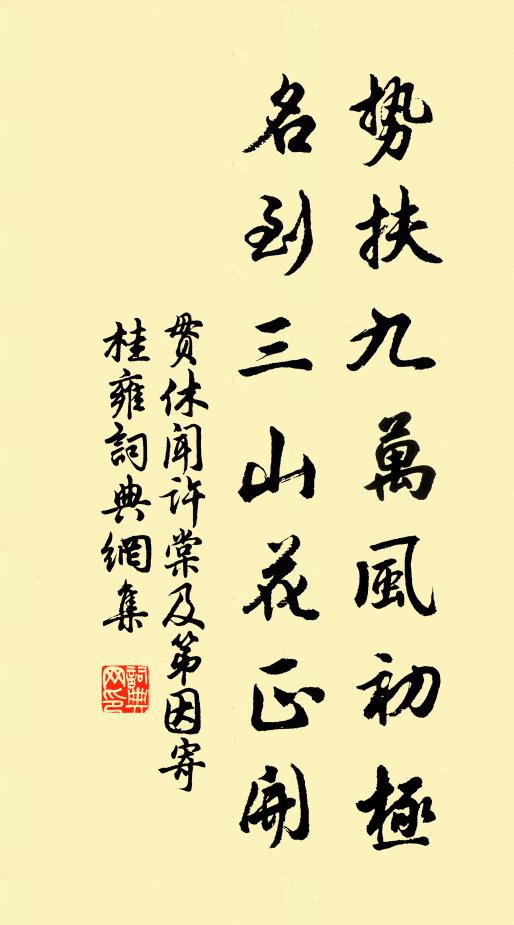 势扶九萬風初極
名到三山花正開
貫休聞許棠及第因寄
桂雍詞典網集
詞典
网印